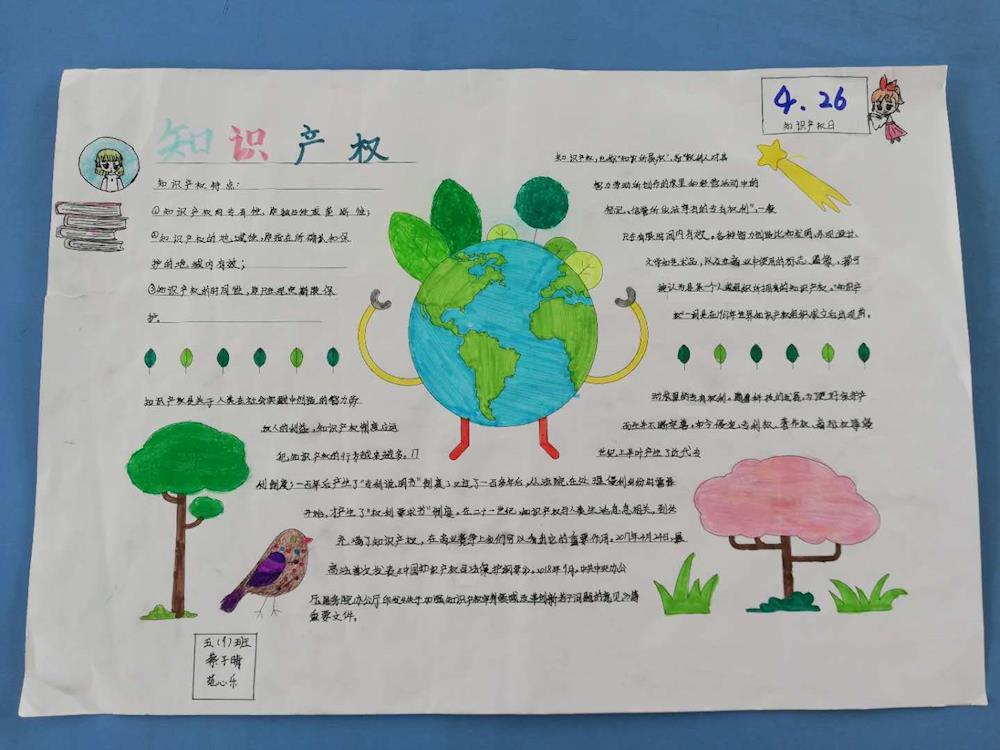 知识产权
4.26
知识产权日
知识产权特点:
①知识产权的专有性,即独占性或垄断性;
②知识产权的地域性,即只在所确认和保
护的地域内有效;
③知识产权的时间性,即只在规定期限保
护。
知识产权,也称“知识所属权”,指“权利人对其
智力劳动所创作的成果和经营活动中的
标记、信誉所依法享有的专有权利”,一般
只在有限时间内有效。各种智力创造比如发明、外观设计、
文学和艺术品,以及在商业中使用的标志、图像,都可
被认为是某一个人或组织所拥有的知识产权。“知识产
权”一词是在1967年世界知识产权组织成立后出现的。
知识产权是关于人类在社会实践中创造的智力劳
动成果的专有权利。随着科技的发展,为了更好保护产
权人的利益,知识产权制度应运
而生并不断完善。如今侵犯专利权、著作权、商标权等侵
犯知识产权的行为越来越多。17
世纪上半叶产生了近代专
利制度;一百年后产生了“专利说明书”制度;又过了一百多年后,从法院在处理侵权纠纷时需要
开始,才产生了“权利要求书”制度。在二十一世纪,知识产权与人类生活息息相关,到处
充满了知识产权,在商业竞争上我们可以看出它的重要作用。2017年4月24日,最
高法首次发表《中国知识产权司法保护纲要》。2018年9月,中共中央办公
厅、国务院办公厅印发《关于加强知识产权审判领域改革创新若干问题的意见》等
重要文件。
五(9)班
子晴
心乐